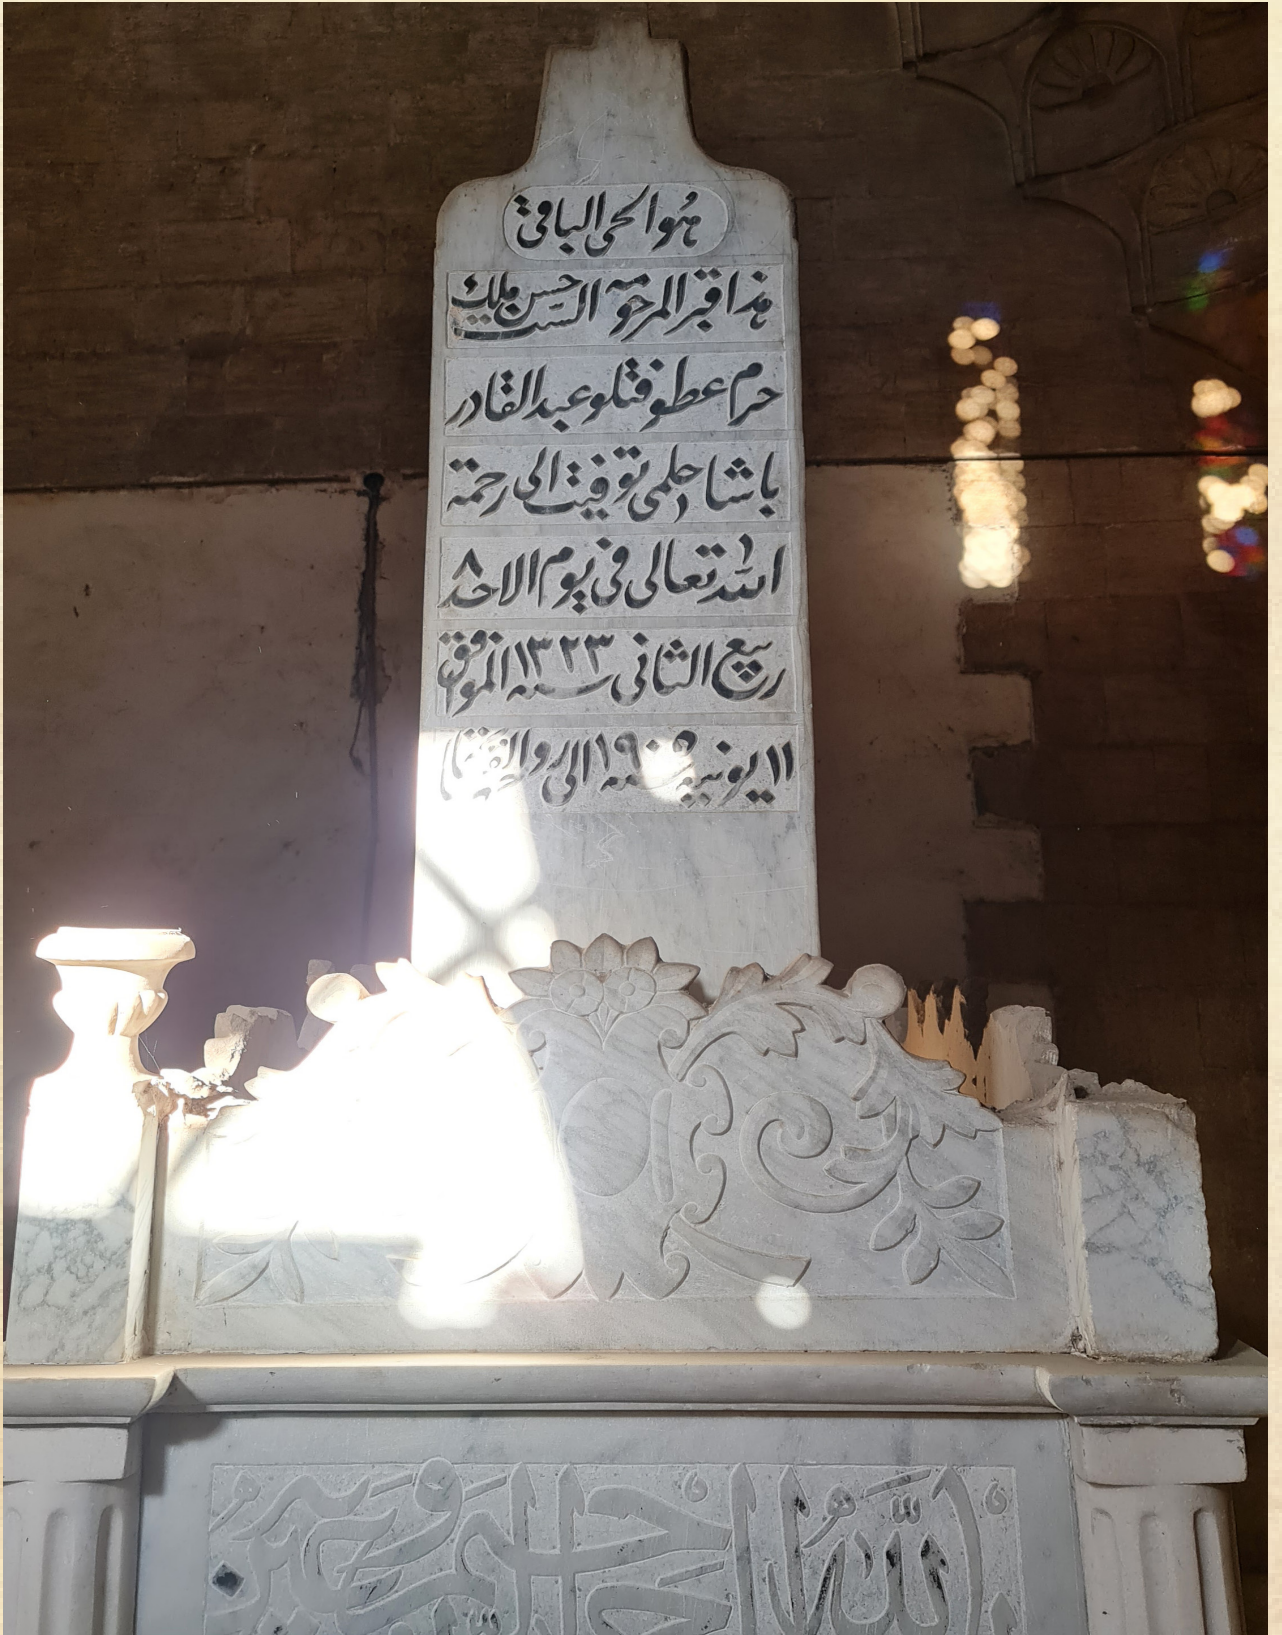 هُو الحي الباقي
هذا قبر المرحومة الست حسن ملك
حرم عطوفتلو عبد القادر
باشا حلمي توفيت الى رحمة
الله تعالى في يوم الاحد ٨
ربيع الثاني سنة ١٣٢٣ الموافق
١١ يونيه سنة ١٩٠٥ الى روحها الفاتحة
الله